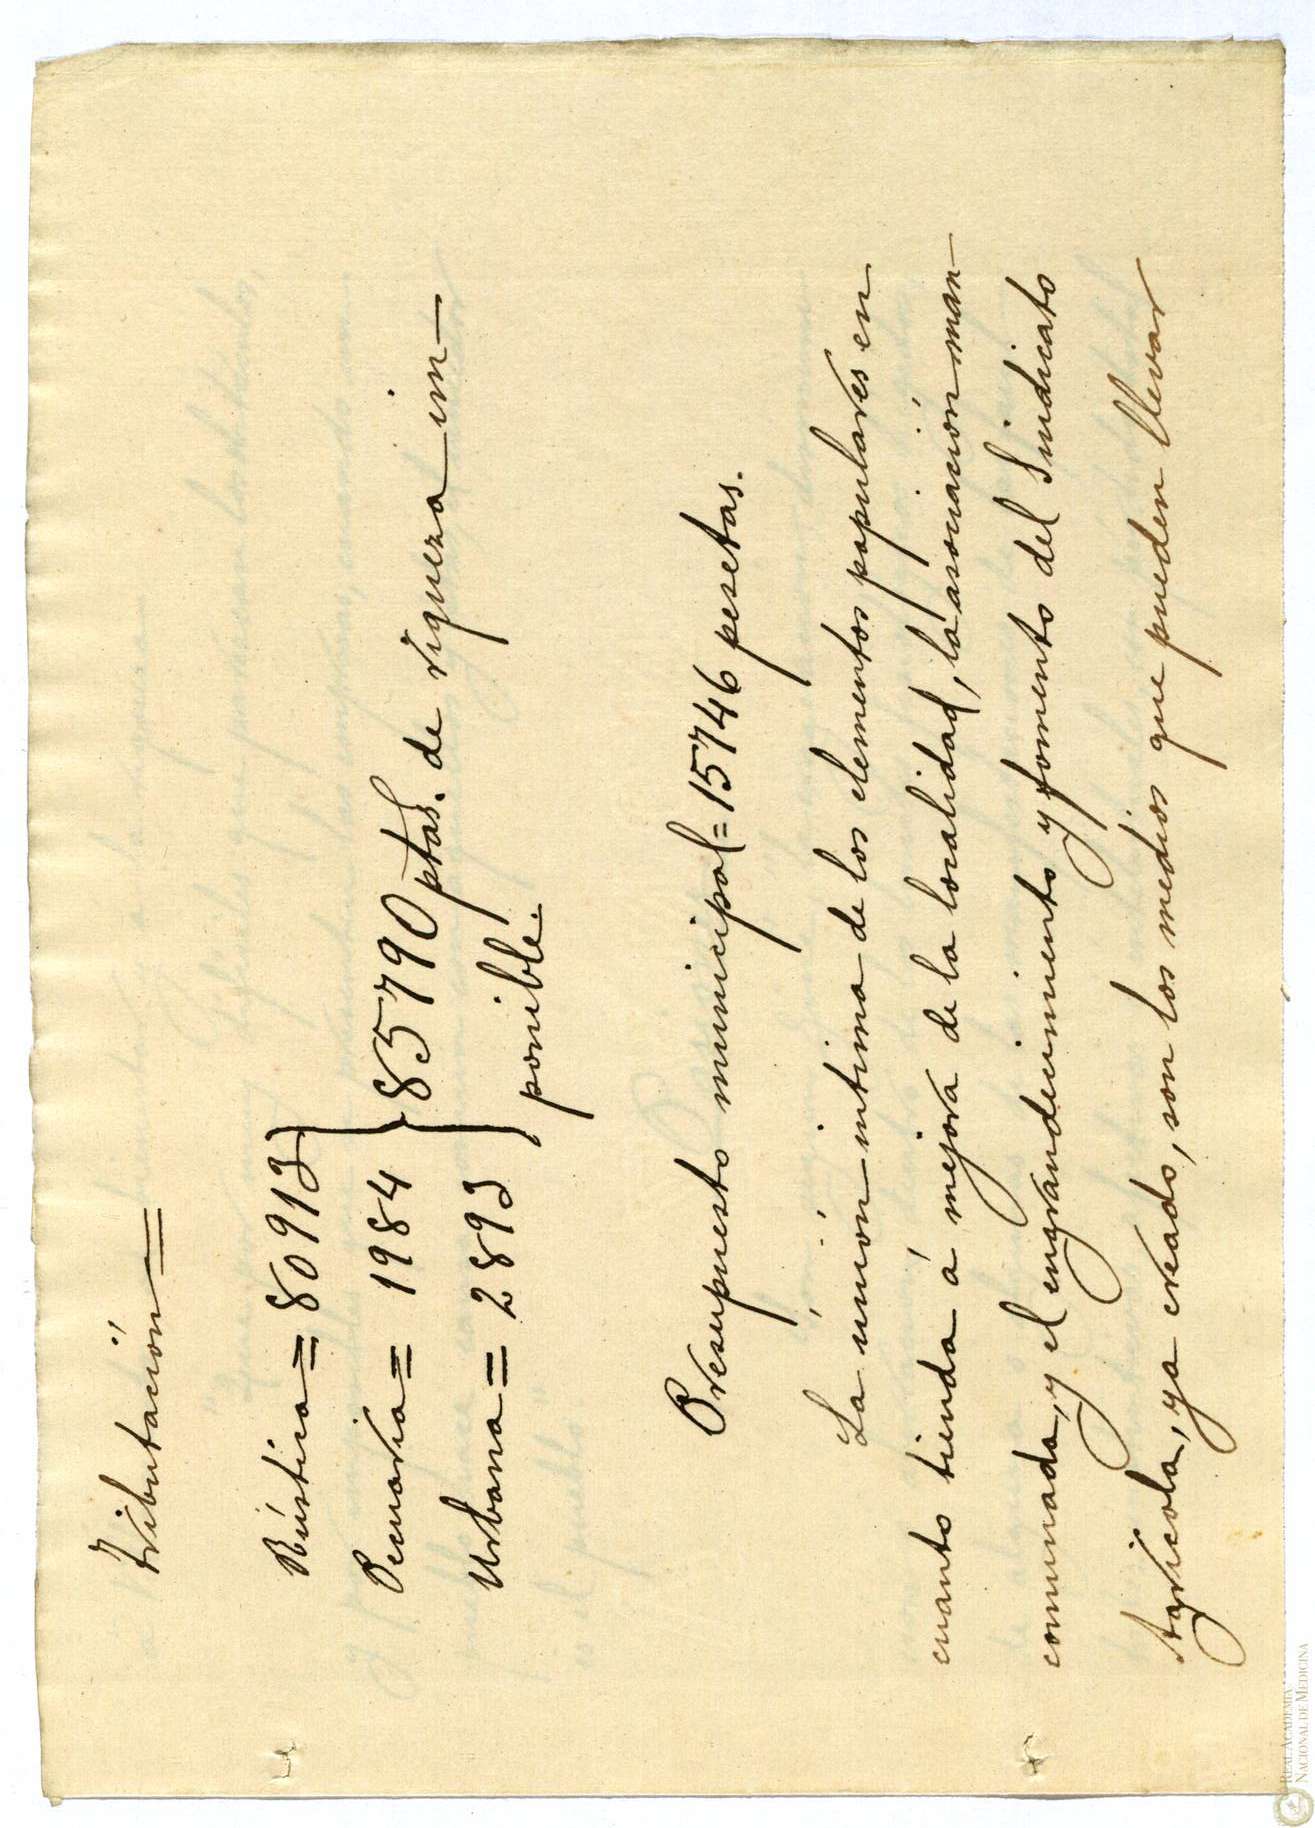 Tributación=
Rústica=80913
Pecuaria=1984 } 85790 ptas. de riqueza im-
Urbana=2893 ponible.
Presupuesto municipal=15746 pesetas.
La únión íntima de los elementos populares en
cuanto tienda á mejora de la localidad, la asociación man-
comunada, y el engrandecimiento y fomento del Sindicato
Agrícola, ya creado, son los medios que pueden llevar
REAL ACADEMIA
NACIONAL DE MEDICINA